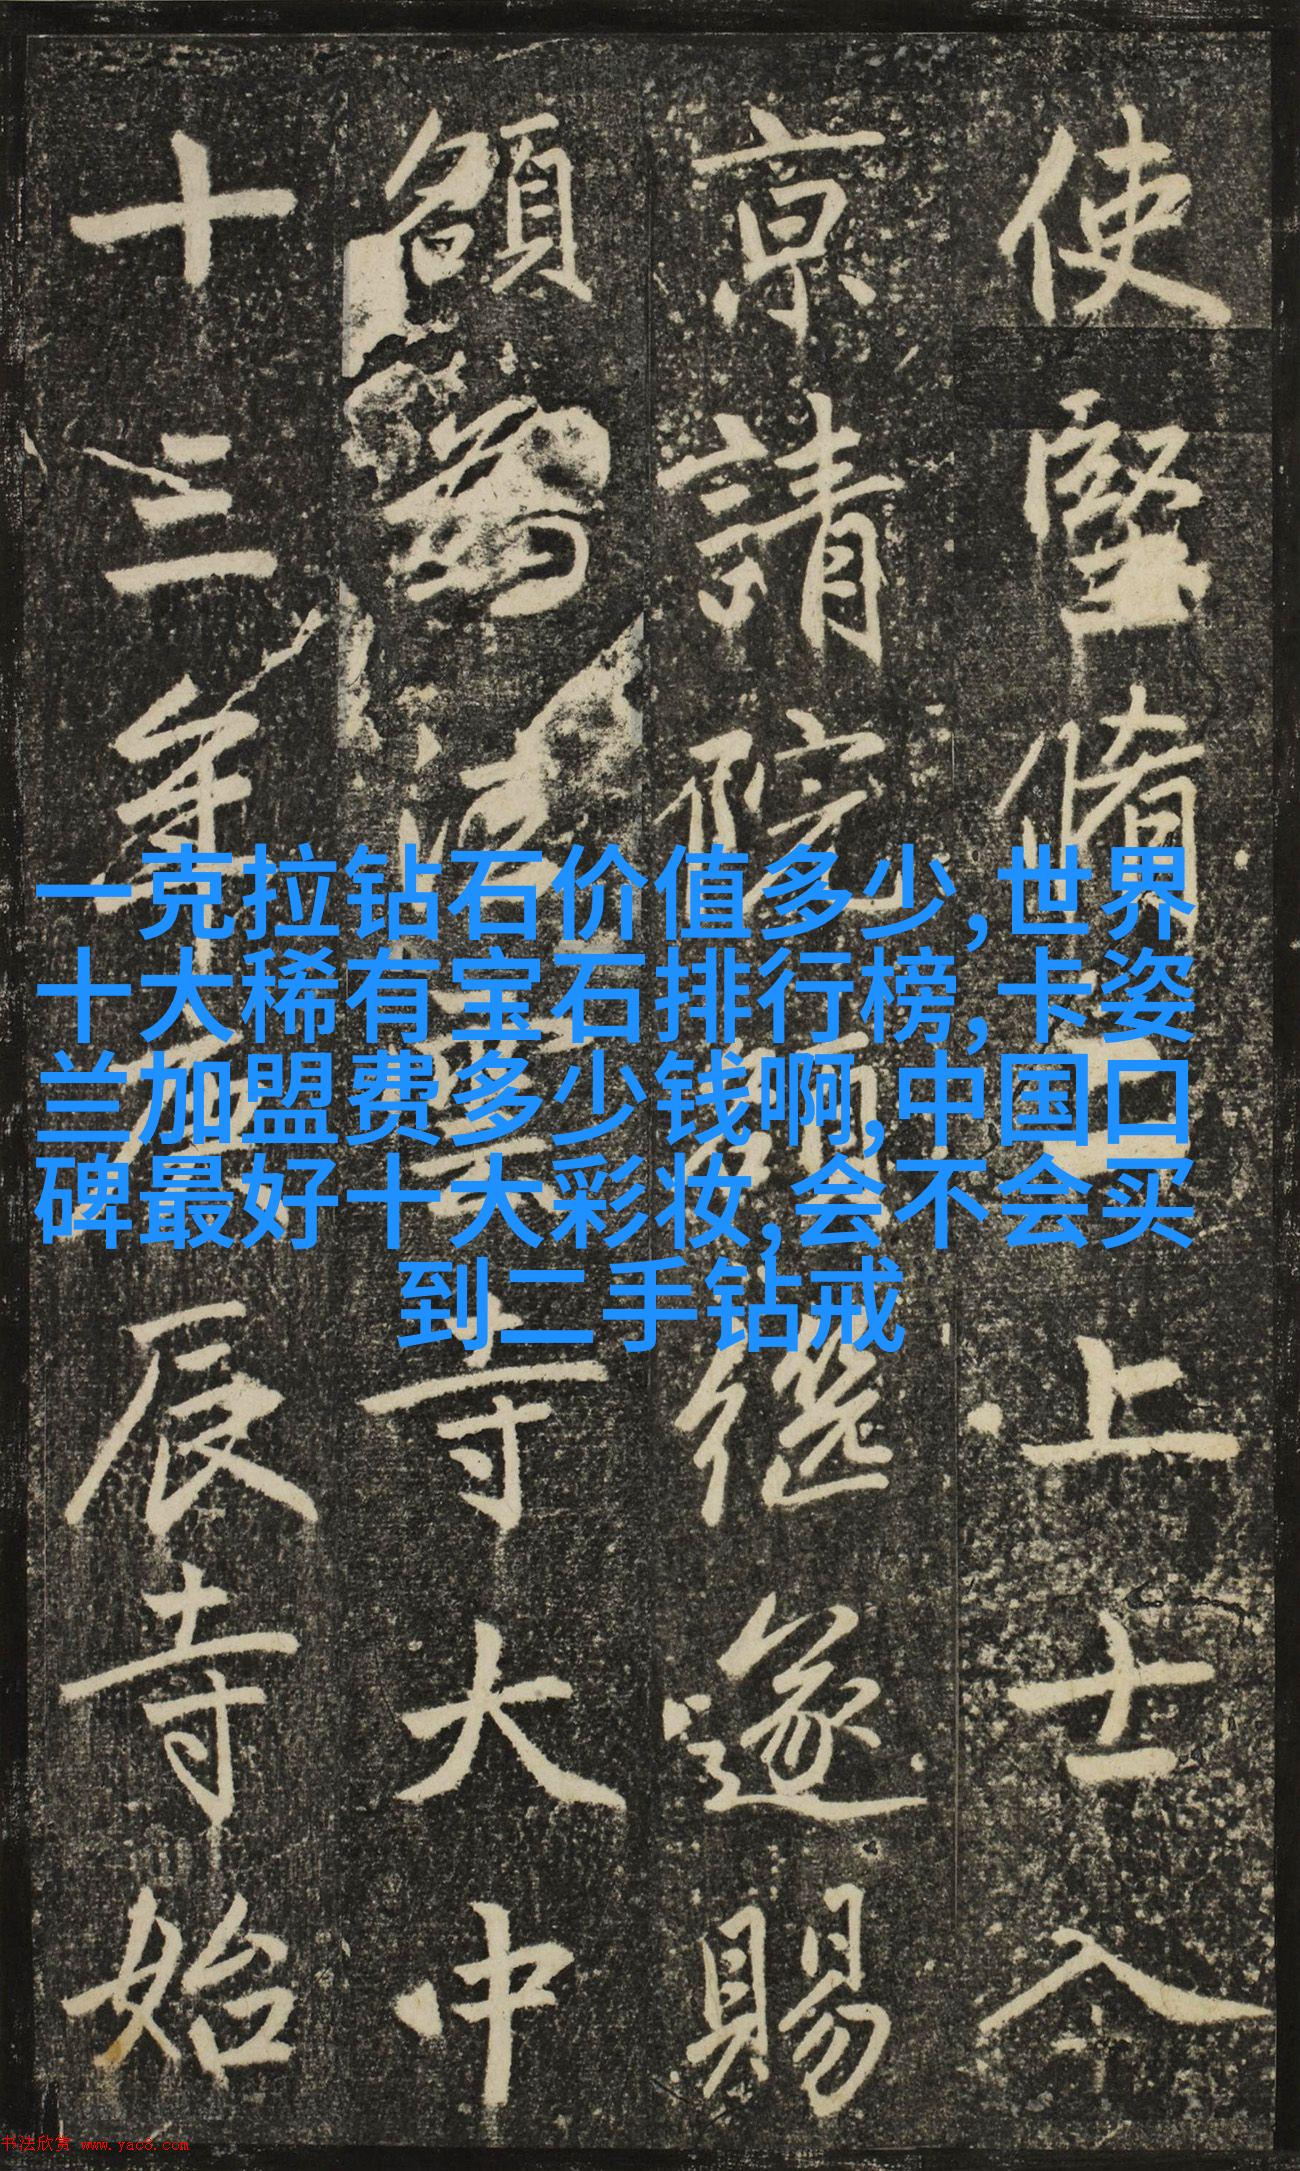 使堅脩上士入
京請院額繼遂賜
額為法雲寺大中
十三年庚辰寺始
一克拉钻石价值多少,世界
十大稀有宝石排行榜,卡姿
兰加盟费多少钱啊,中国口
碑最好十大彩妆,会不会买
到二手钻戒
书法欣赏 www.yac8.com